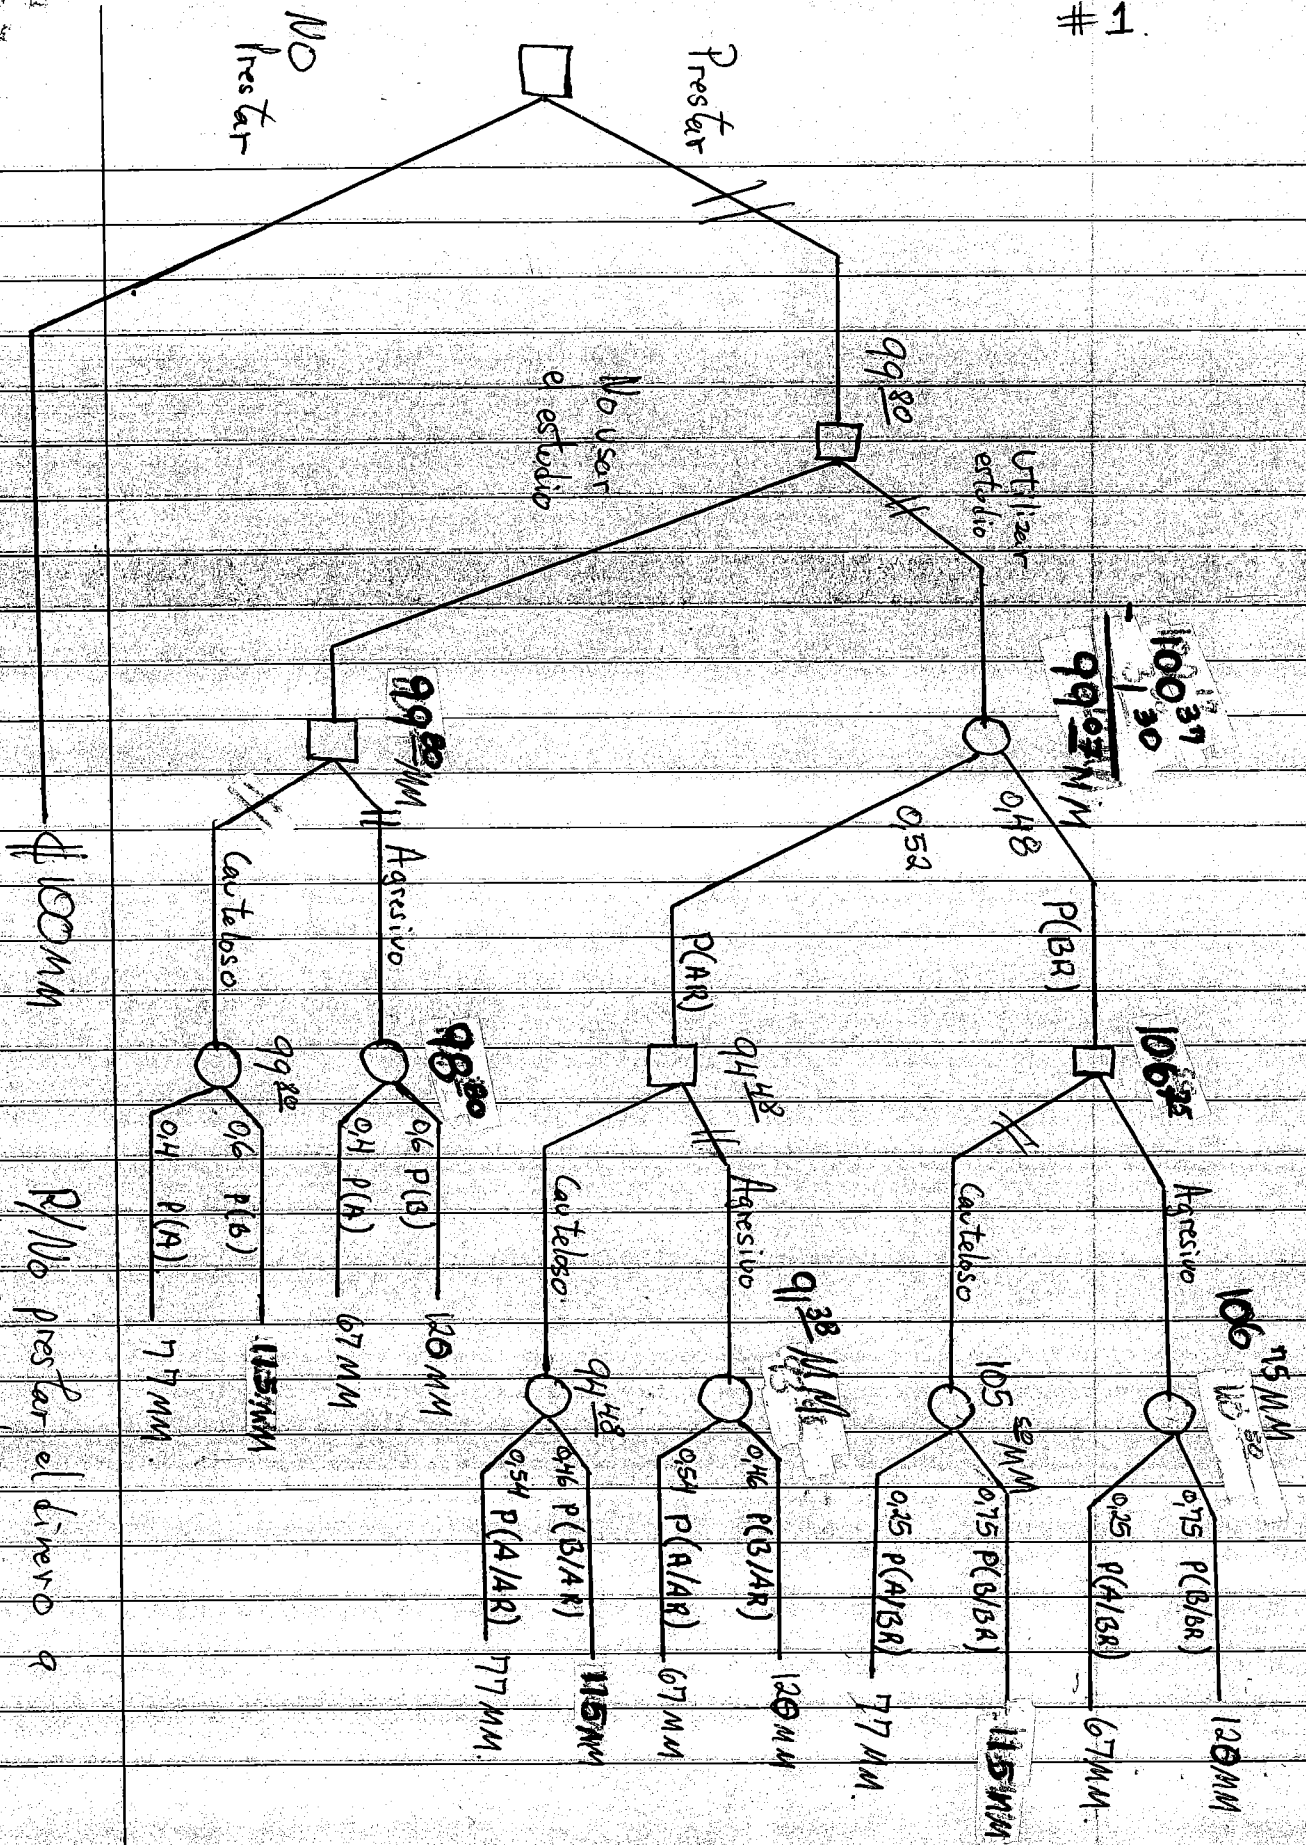 #1
Prestar
No
Prestar
99 80
Utilizar
estudio
No usar
e estudio
100 37
1 30
99 07 MM
0,48
0,52
P(BR)
P(AR)
106 75
Agresivo
106 75 MM
0,75 P(B/BR)
120MM
0,25 P(A/BR)
67MM
Cauteloso
105 50 MM
0,75 P(B/BR)
115MM
0,25 P(A/BR)
77MM
94 48
Agresivo
91 38 MM
0,46 P(B/AR)
120MM
0,54 P(A/AR)
67MM
Cauteloso
94 48
0,46 P(B/AR)
115MM
0,54 P(A/AR)
77MM.
99 80 MM
Agresivo
98 80
0,6 P(B)
120MM
0,4 P(A)
67MM
Cauteloso
99 80
0,6 P(B)
115MM
0,4 P(A)
77MM
$100MM
R/No prestar el dinero a